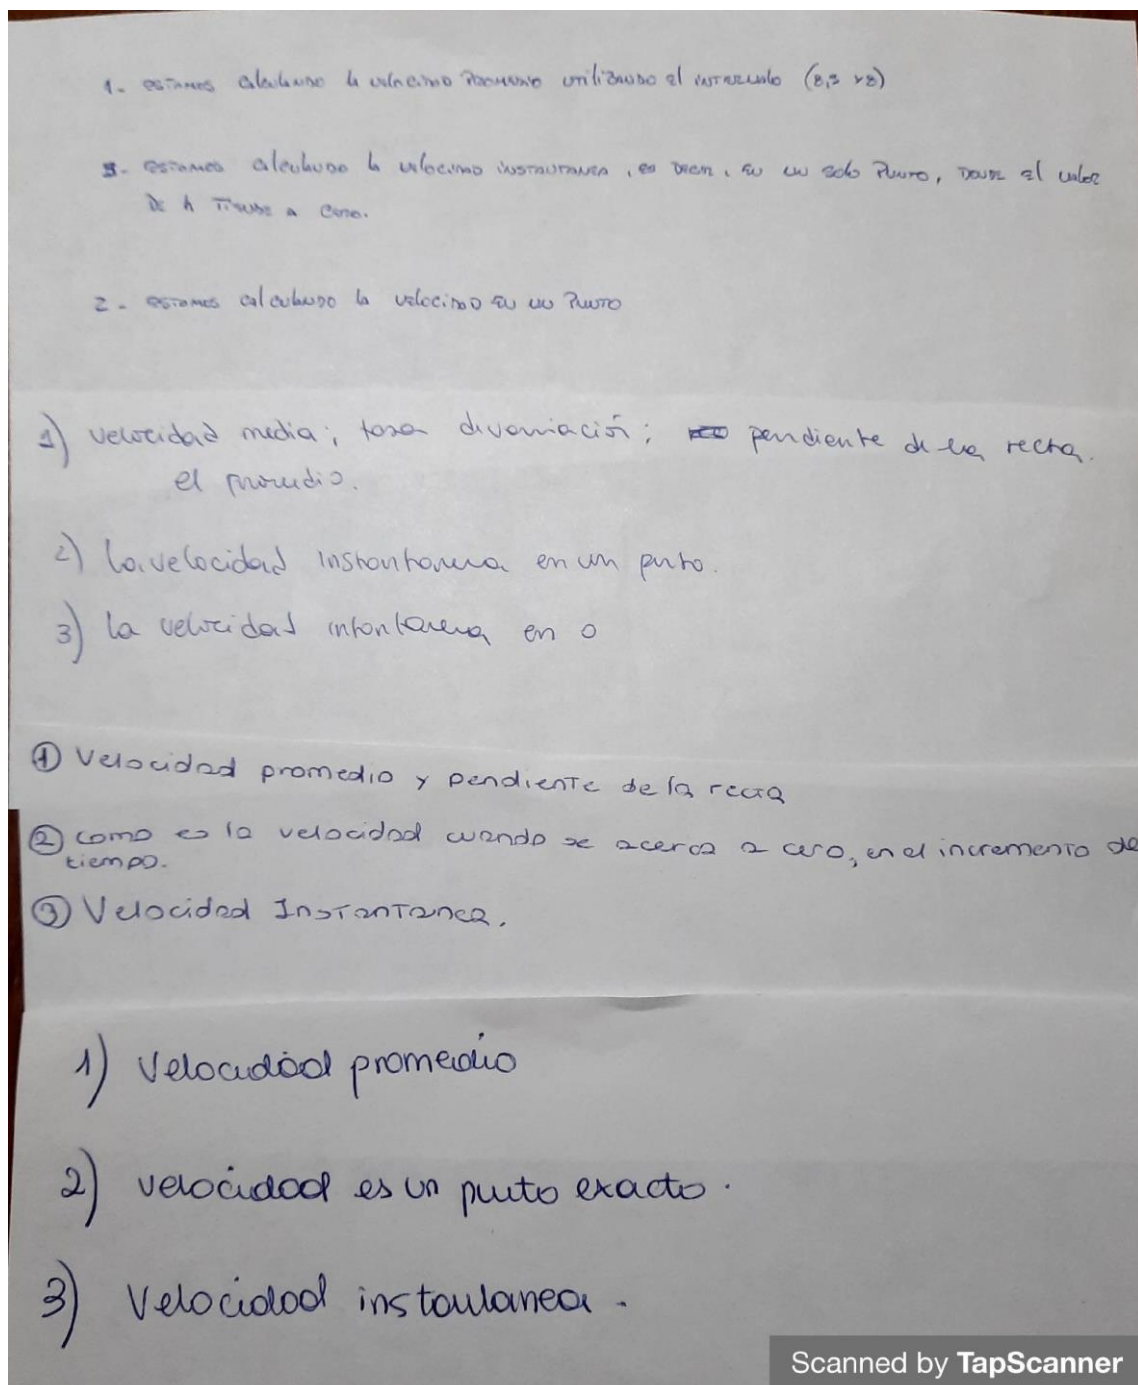 1- ESTAMOS CALCULANDO LA VELOCIDAD PROMEDIO UTILIZANDO EL INTERVALO (8,3 y 8)
3- ESTAMOS CALCULANDO LA VELOCIDAD INSTANTANEA, ES DECIR, EN UN SOLO PUNTO, DONDE EL VALOR
DE h TIENDE A CERO.
2- ESTAMOS CALCULANDO LA VELOCIDAD EN UN PUNTO
1) velocidad media; tasa de variación; pendiente de la recta.
el promedio.
2) La velocidad instantanea en un punto.
3) La velocidad intantanea en 0
① Velocidad promedio y pendiente de la recta
② como es la velocidad cuando se acerca a cero, en el incremento de
tiempo.
③ Velocidad Instantanea.
1) Velocidad promedio
2) velocidad es un punto exacto.
3) Velocidad instantanea.
Scanned by TapScanner